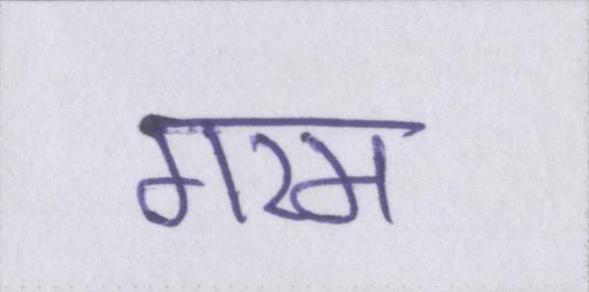 गरम